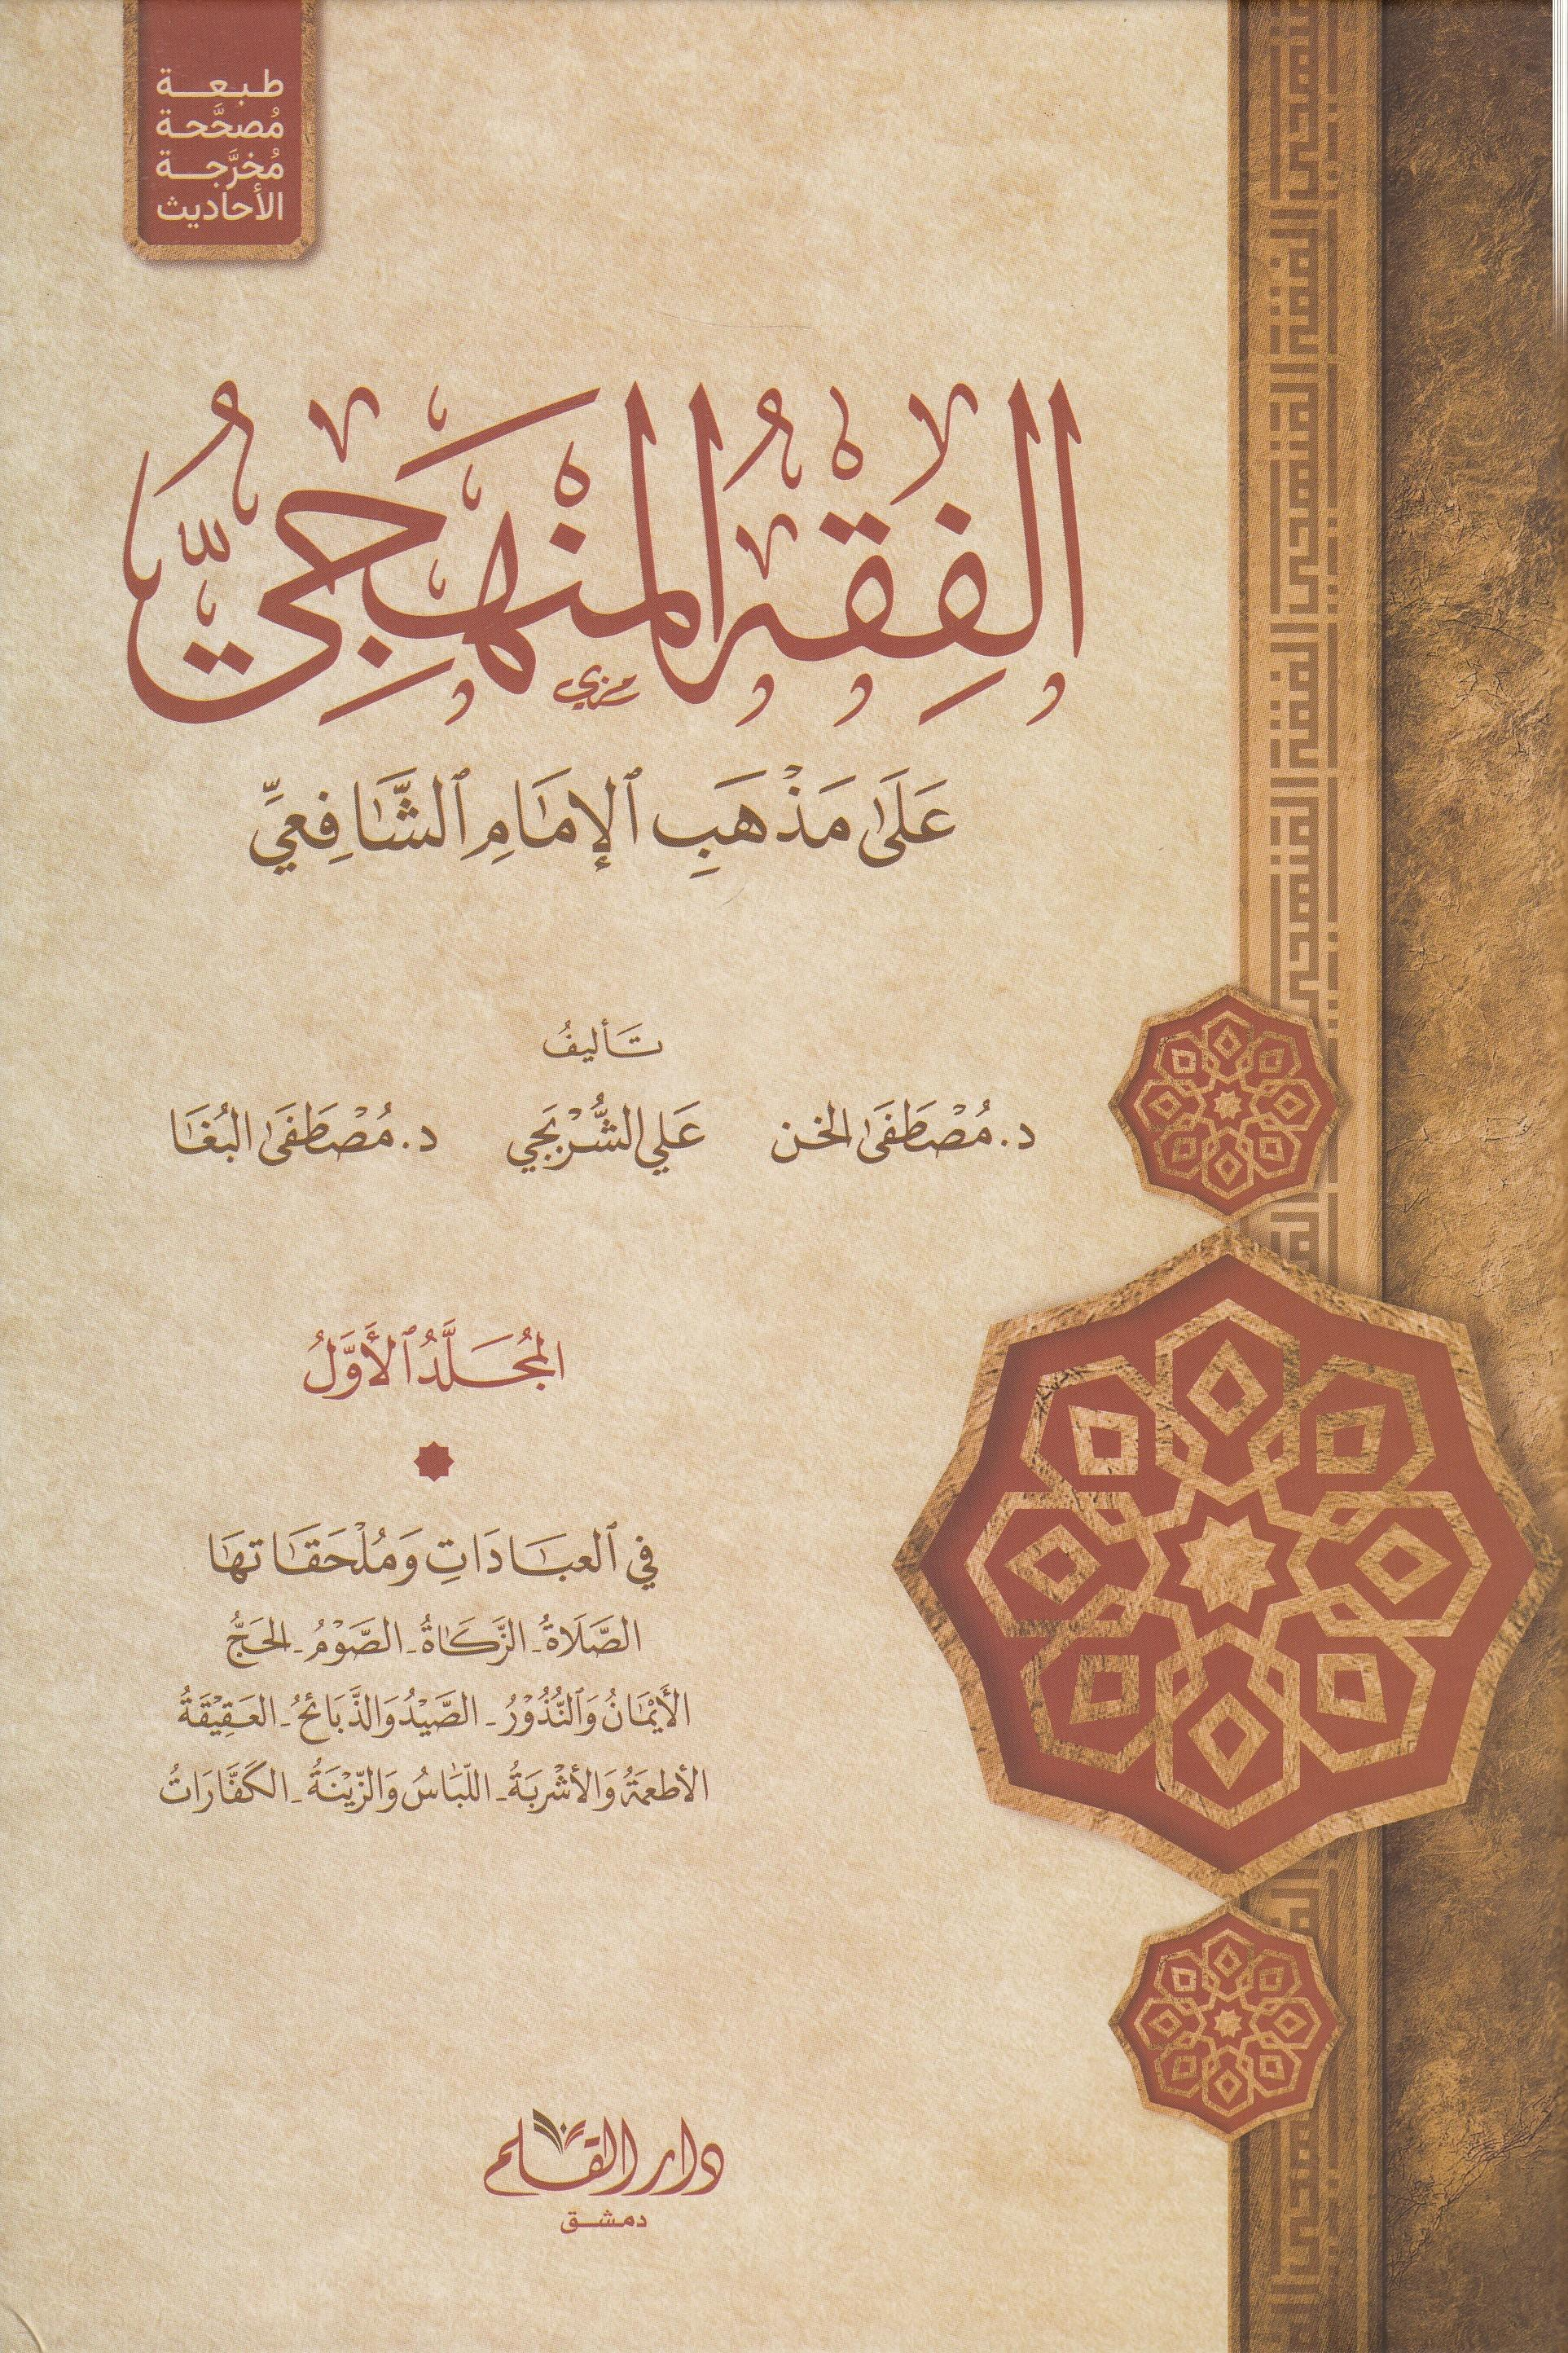 طبعة
مُصحَّحة
مُخرَّجة
الأحاديث
الفِقْهُ المَنْهَجِيُّ
عَلَىٰ مَذْهَبِ ٱلإمَامِ ٱلشَّافِعِيِّ
تَأليفُ
د. مُصْطَفَىٰ الخن عَلي الشُّرْبَجي د. مُصْطَفَىٰ البُغَا
المُجَلَّدُ ٱلأَوَّلُ
في ٱلعبَادَاتِ وَمُلْحَقَاتهَا
الصَّلَاةُ - الزَّكَاةُ - الصَّوْمُ - الحَجُّ
الأَيْمَانُ وَٱلنُّذُوْرُ - الصَّيْدُ وَالذَّبَائحُ - العَقِيْقَةُ
الأطعمَةُ وَالأشْرِبَةُ - اللّبَاسُ وَالزّيْنَةُ - الكَفَّارَاتُ
دار القلم
دمشق
الفقه المنهجي الفقه المنهجي الفقه المنهجي